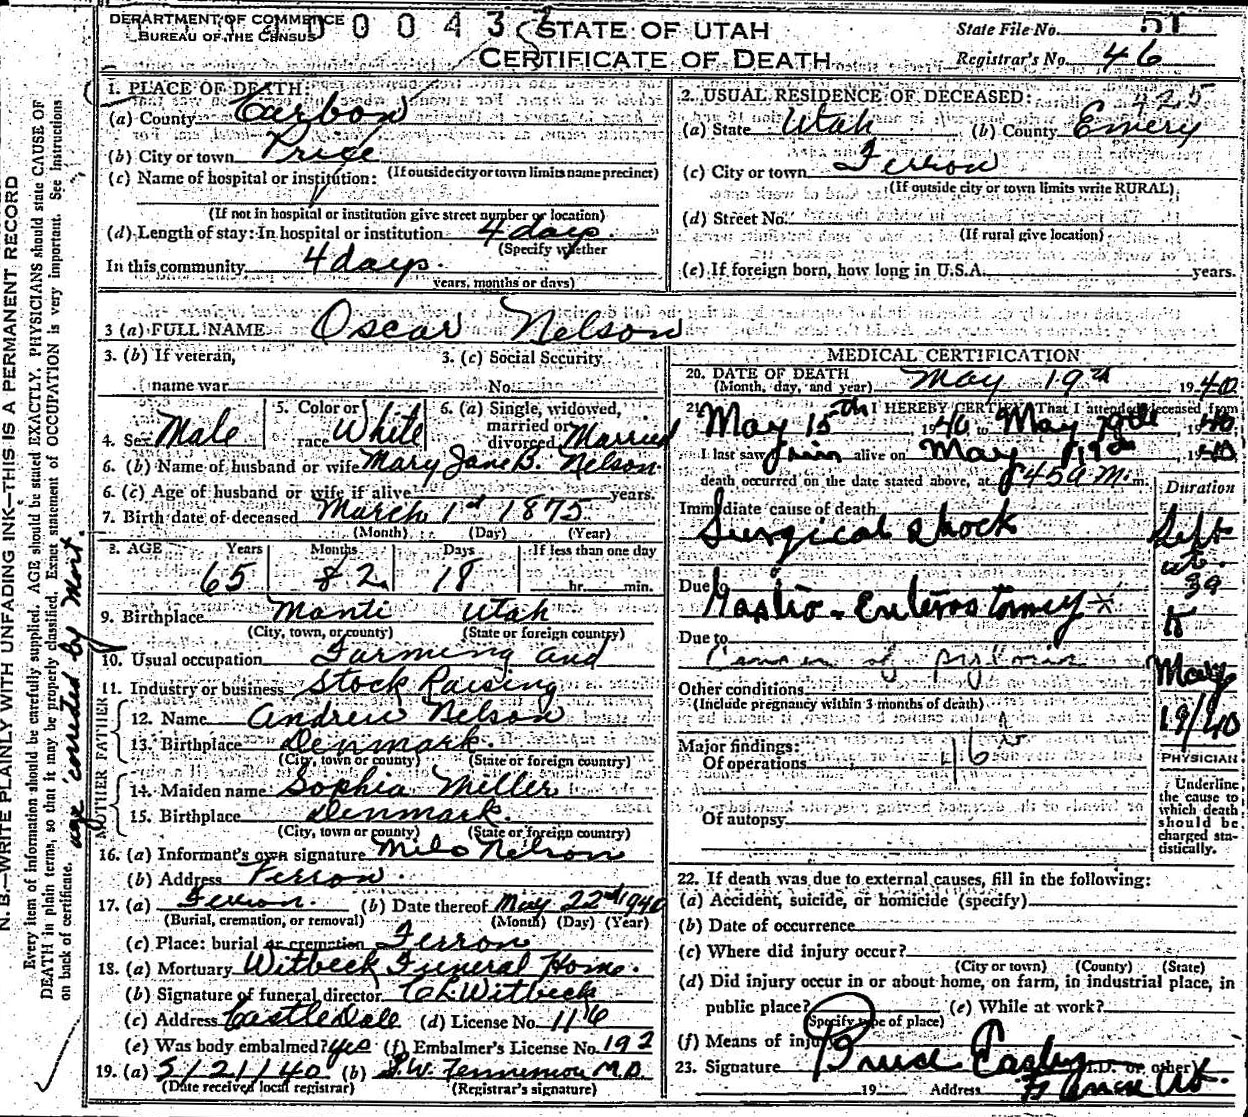 DEPARTMENT OF COMMERCE
BUREAU OF THE CENSUS
0 0 4 3
STATE OF UTAH
CERTIFICATE OF DEATH
State File No. 51
Registrar's No. 46
1. PLACE OF DEATH:
(a) County Carbon
(b) City or town Price
(If outside city or town limits name precinct)
(c) Name of hospital or institution:
(If not in hospital or institution give street number or location)
(d) Length of stay: In hospital or institution 4 days.
(Specify whether
In this community 4 days.
years, months or days)
2. USUAL RESIDENCE OF DECEASED: 425
(a) State Utah (b) County Emery
(c) City or town Ferron
(If outside city or town limits write RURAL)
(d) Street No.
(If rural give location)
(e) If foreign born, how long in U.S.A. years.
3 (a) FULL NAME Oscar Nelson
3. (b) If veteran, name war
3. (c) Social Security No.
4. Sex Male
5. Color or race White
6. (a) Single, widowed, married or divorced Married
6. (b) Name of husband or wife Mary Jane B. Nelson.
6. (c) Age of husband or wife if alive years.
7. Birth date of deceased March 1st 1875
(Month) (Day) (Year)
8. AGE Years Months Days If less than one day
65 2 18 hr. min.
9. Birthplace Manti Utah
(City, town, or county) (State or foreign country)
10. Usual occupation Farming and
11. Industry or business Stock Raising
FATHER
12. Name Andrew Nelson
13. Birthplace Denmark.
(City, town or county) (State or foreign country)
MOTHER
14. Maiden name Sophia Miller
15. Birthplace Denmark.
(City, town or county) (State or foreign country)
16. (a) Informant's own signature Milo Nelson
(b) Address Ferron.
17. (a) Ferron. (b) Date thereof May 22nd 1940
(Burial, cremation, or removal) (Month) (Day) (Year)
(c) Place: burial or cremation Ferron
18. (a) Mortuary Witbeck Funeral Home.
(b) Signature of funeral director C.L. Witbeck
(c) Address Castle Dale (d) License No. 116
(e) Was body embalmed? yes (f) Embalmer's License No. 192
19. (a) 5/21/40 (b) M.D.
(Date received local registrar) (Registrar's signature)
MEDICAL CERTIFICATION
20. DATE OF DEATH
(Month, day, and year) May 19th 1940
21. I HEREBY CERTIFY That I attended deceased from
May 15th 1940 to May 19th, 1940
I last saw him alive on May 19th, 1940
death occurred on the date stated above, at 8 45 a M. m.
Duration
Immediate cause of death
Surgical shock
Due to
Gastro-Enterostomy *
Due to
Cancer of pylorus
Sept
39
to
May
19/40
Other conditions
(Include pregnancy within 3 months of death)
Major findings:
Of operations
46b
Of autopsy
PHYSICIAN
Underline the cause to which death should be charged statistically.
22. If death was due to external causes, fill in the following:
(a) Accident, suicide, or homicide (specify)
(b) Date of occurrence
(c) Where did injury occur?
(City or town) (County) (State)
(d) Did injury occur in or about home, on farm, in industrial place, in
public place? (e) While at work?
(Specify type of place)
(f) Means of injury
23. Signature (M.D. or other)
19 Address
N. B.—WRITE PLAINLY WITH UNFADING INK—THIS IS A PERMANENT RECORD
Every item of information should be carefully supplied. AGE should be stated EXACTLY. PHYSICIANS should state CAUSE OF
DEATH in plain terms, so that it may be properly classified. Exact statement of OCCUPATION is very important. See instructions
on back of certificate.
age corrected by Mort.